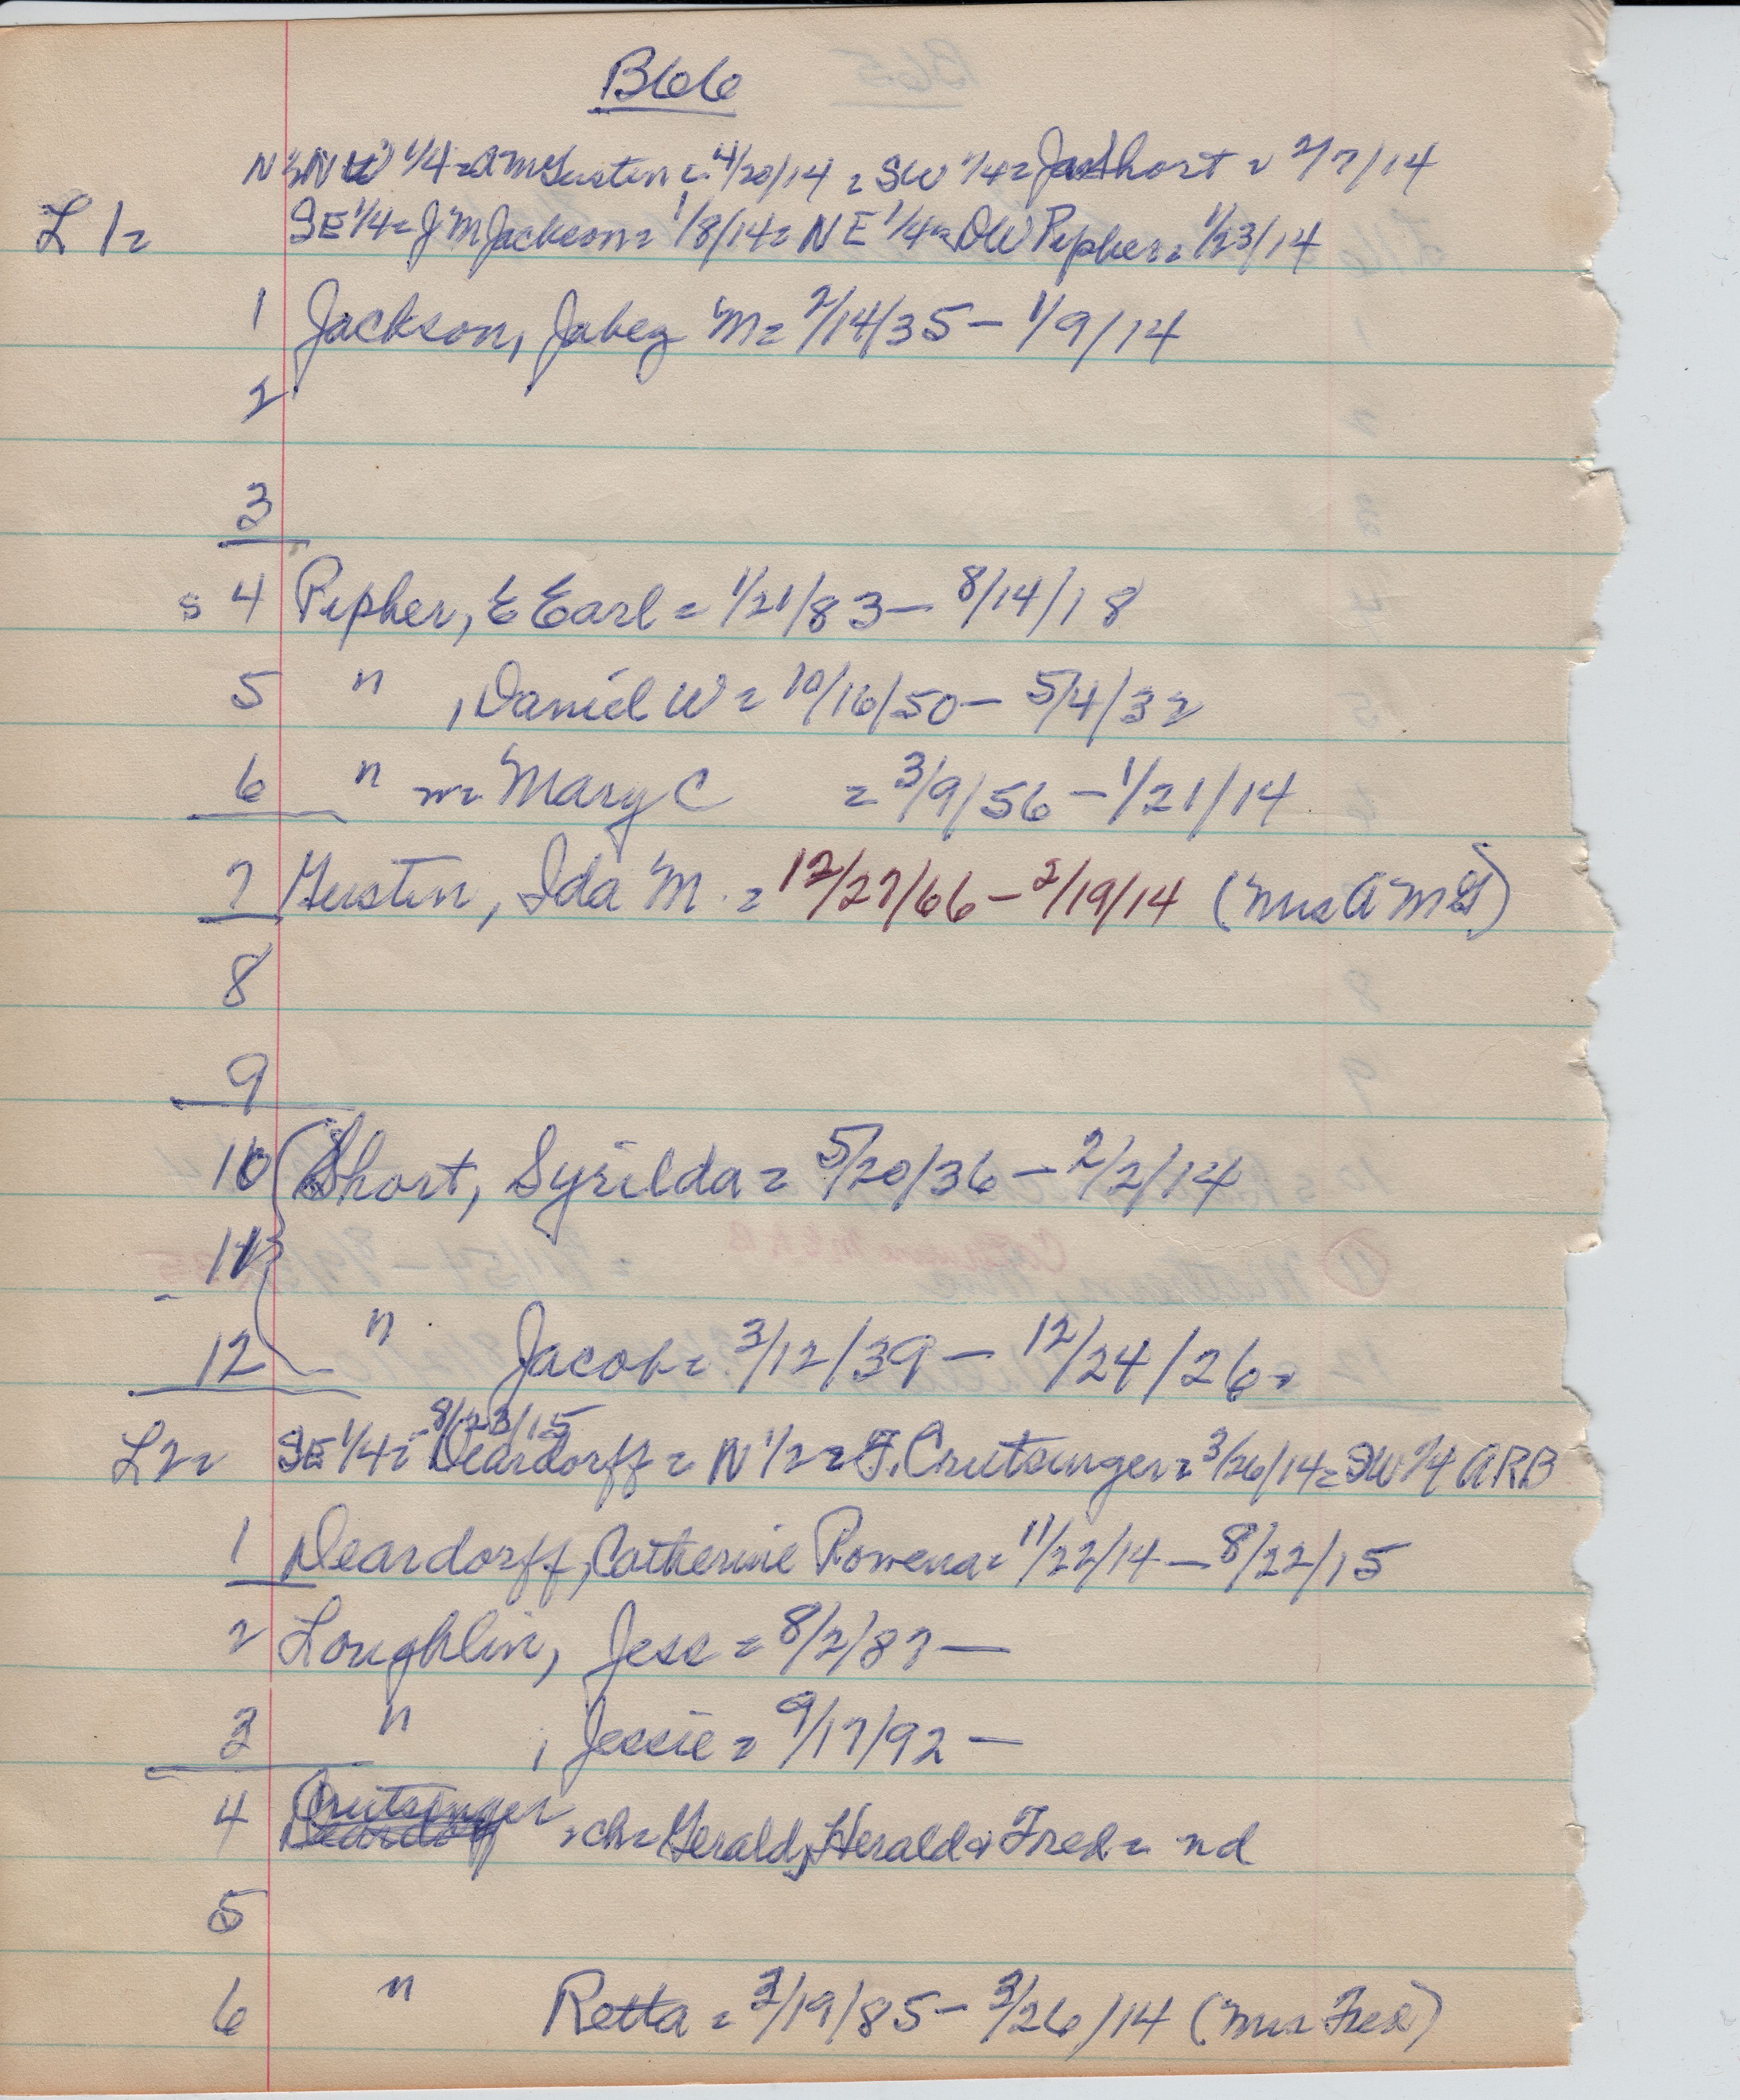 B66
NW 1/4 = A M Gustin = 4/20/14 = SW 1/4 = Jas Short = 2/7/14
L 1 = SE 1/4 = J M Jackson = 1/8/14 = NE 1/4 = D W Pepher = 1/23/14
1 Jackson, Jabez M = 2/14/35 - 1/9/14
2
3
s 4 Pepher, E Earl = 1/21/83 - 8/14/18
5 " , Daniel W = 10/16/50 - 5/4/32
6 " Mary C = 3/9/56 - 1/21/14
7 Gustin, Ida M. = 12/27/66 - 2/19/14 (Mrs A M G)
8
9
10 Short, Syrilda = 5/20/36 - 2/2/14
11
12 " Jacob = 3/12/39 - 12/24/26 =
8/23/15
L 2 = SE 1/4 = Deardorff = N 1/2 = F. Crutsinger = 3/26/14 = SW 1/4 ARB
1 Deardorff, Catherine Rowena = 11/22/14 - 8/22/15
2 Loughlin, Jess = 8/2/87 -
3 " , Jessie = 9/17/92 -
Crutsinger
4 Deardorff = ch = Gerald, Herald & Fred = nd
5
6 " Retta = 3/19/85 - 3/26/14 (Mrs Fred)